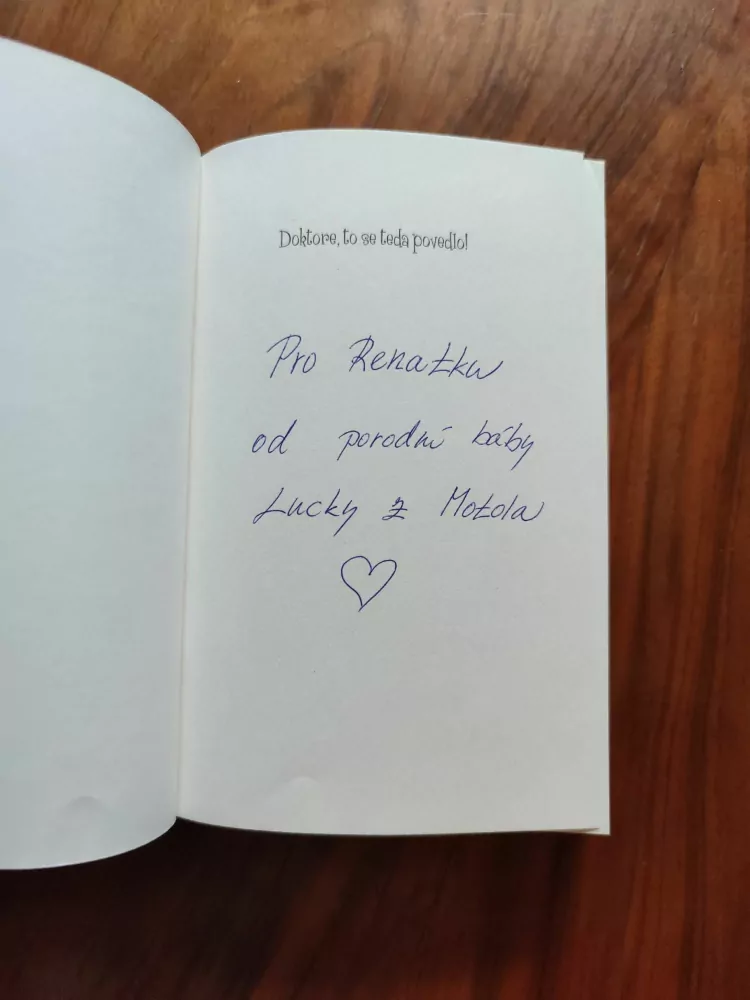 Doktore, to se teda povedlo!
Pro Renatku
od porodní báby
Lucky z Motola